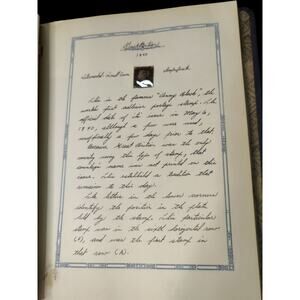 Great Britain
1840
This is the famous "Penny Black", the
world's first adhesive postage stamp. The
official date of its issue is May 6,
1840, although a few were used,
unofficially a few days prior to that.
Because Great Britain was the only
country using this type of stamp, that
country's name was not printed on this
issue. This established a tradition that
remains to this day.
The letters in the lower corners
identify the position in the plate
held by the stamp. This particular
stamp was in the horizontal row
and was the first stamp in
that row (A).